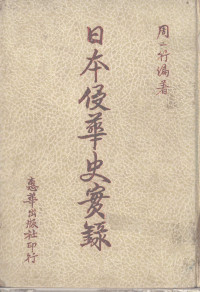 周一行編著
日本侵華史實錄
惠華出版社印行